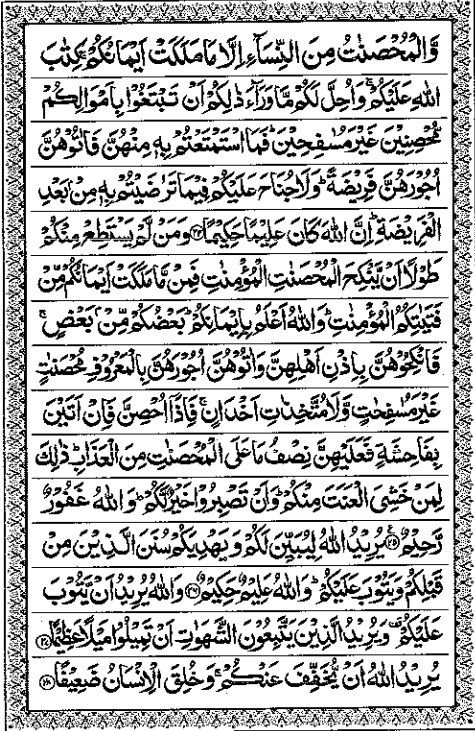 وَّالْمُحْصَنٰتُ مِنَ النِّسَآءِ اِلَّا مَا مَلَكَتْ اَيْمَانُكُمْ ۚ كِتٰبَ
اللّٰهِ عَلَيْكُمْ ۚ وَاُحِلَّ لَكُمْ مَّا وَرَآءَ ذٰلِكُمْ اَنْ تَبْتَغُوْا بِاَمْوَالِكُمْ
مُّحْصِنِيْنَ غَيْرَ مُسٰفِحِيْنَ ؕ فَمَا اسْتَمْتَعْتُمْ بِهٖ مِنْهُنَّ فَاٰتُوْهُنَّ
اُجُوْرَهُنَّ فَرِيْضَةً ؕ وَلَا جُنَاحَ عَلَيْكُمْ فِيْمَا تَرٰضَيْتُمْ بِهٖ مِنْۢ بَعْدِ
الْفَرِيْضَةِ ؕ اِنَّ اللّٰهَ كَانَ عَلِيْمًا حَكِيْمًا ﴿۲۴﴾ وَمَنْ لَّمْ يَسْتَطِعْ مِنْكُمْ
طَوْلًا اَنْ يَّنْكِحَ الْمُحْصَنٰتِ الْمُؤْمِنٰتِ فَمِنْ مَّا مَلَكَتْ اَيْمَانُكُمْ مِّنْ
فَتَيٰتِكُمُ الْمُؤْمِنٰتِ ؕ وَاللّٰهُ اَعْلَمُ بِاِيْمَانِكُمْ ؕ بَعْضُكُمْ مِّنْۢ بَعْضٍ ۚ
فَانْكِحُوْهُنَّ بِاِذْنِ اَهْلِهِنَّ وَاٰتُوْهُنَّ اُجُوْرَهُنَّ بِالْمَعْرُوْفِ مُحْصَنٰتٍ
غَيْرَ مُسٰفِحٰتٍ وَّلَا مُتَّخِذٰتِ اَخْدَانٍ ۚ فَاِذَاۤ اُحْصِنَّ فَاِنْ اَتَيْنَ
بِفَاحِشَةٍ فَعَلَيْهِنَّ نِصْفُ مَا عَلَى الْمُحْصَنٰتِ مِنَ الْعَذَابِ ؕ ذٰلِكَ
لِمَنْ خَشِيَ الْعَنَتَ مِنْكُمْ ؕ وَاَنْ تَصْبِرُوْا خَيْرٌ لَّكُمْ ؕ وَاللّٰهُ غَفُوْرٌ
رَّحِيْمٌ ﴿۲۵﴾ يُرِيْدُ اللّٰهُ لِيُبَيِّنَ لَكُمْ وَيَهْدِيَكُمْ سُنَنَ الَّذِيْنَ مِنْ
قَبْلِكُمْ وَيَتُوْبَ عَلَيْكُمْ ؕ وَاللّٰهُ عَلِيْمٌ حَكِيْمٌ ﴿۲۶﴾ وَاللّٰهُ يُرِيْدُ اَنْ يَّتُوْبَ
عَلَيْكُمْ ۫ وَيُرِيْدُ الَّذِيْنَ يَتَّبِعُوْنَ الشَّهَوٰتِ اَنْ تَمِيْلُوْا مَيْلًا عَظِيْمًا ﴿۲۷﴾
يُرِيْدُ اللّٰهُ اَنْ يُّخَفِّفَ عَنْكُمْ ۚ وَخُلِقَ الْاِنْسَانُ ضَعِيْفًا ﴿۲۸﴾